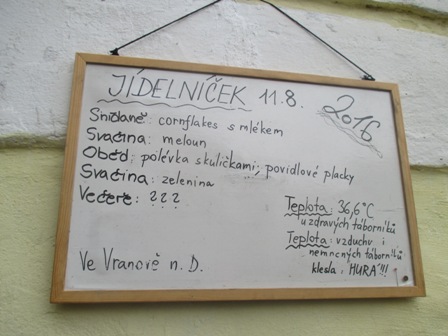 JÍDELNÍČEK 11.8. 2016
Snídaně: cornflakes s mlékem
Svačina: meloun
Oběd: polévka s kuličkami; povidlové placky
Svačina: zelenina
Večeře: ???
Teplota: 36,6°C
u zdravých táborníků
Teplota: vzduchu i
nemocných táborníků
klesla, HURÁ!!!
Ve Vranově n. D.